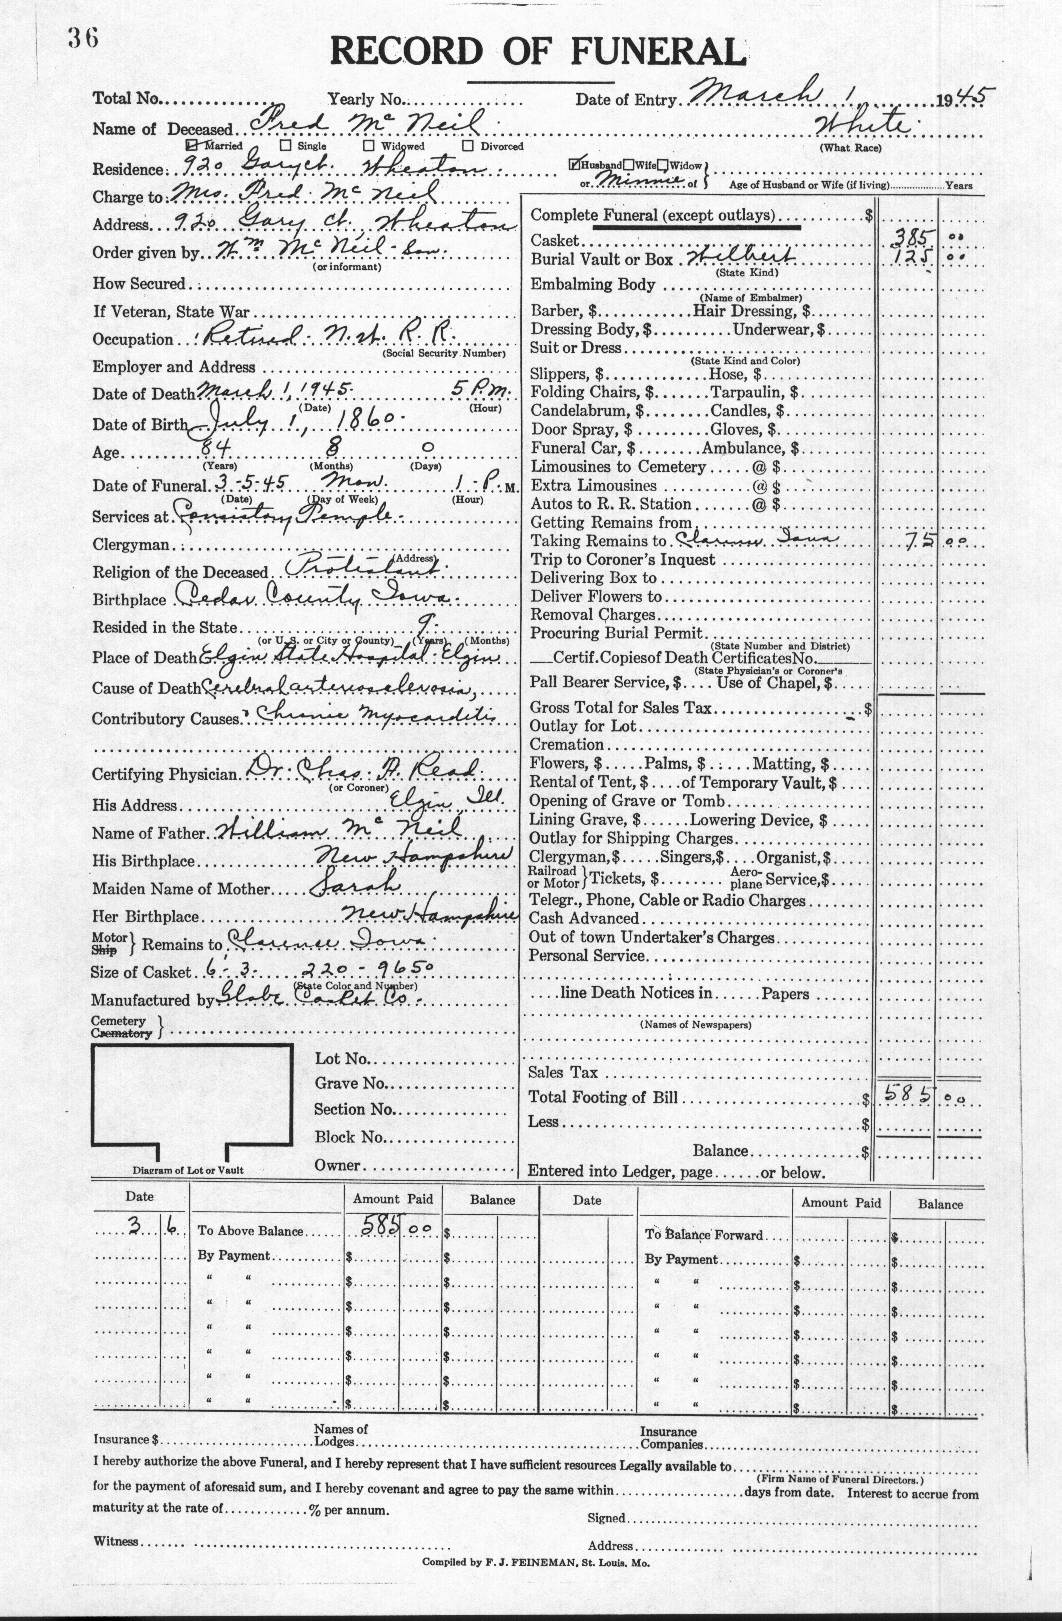 36
RECORD OF FUNERAL
Total No. Yearly No. Date of Entry. March 1, 1945
Name of Deceased. Fred McNeil White
☑ Married ☐ Single ☐ Widowed ☐ Divorced (What Race)
Residence: 920 Gary ct. Wheaton. ☑Husband☐Wife☐Widow
or. Minnie of } Age of Husband or Wife (if living) Years
Charge to: Mrs. Fred McNeil
Address. 920 Gary ct. Wheaton
Order given by. Wm McNeil - Son.
(or informant)
How Secured.
If Veteran, State War
Occupation. Retired - N.W. R. R.
(Social Security Number)
Employer and Address
Date of Death March 1, 1945. 5 P.m.
(Date) (Hour)
Date of Birth July 1, 1860.
Age 84 8 0
(Years) (Months) (Days)
Date of Funeral. 3-5-45 Mon. 1-P. M.
(Date) (Day of Week) (Hour)
Services at Consistory Temple.
Clergyman.
(Address)
Religion of the Deceased. Protestant.
Birthplace Cedar County Iowa.
Resided in the State 9.
(or U. S. or City or County) (Years) (Months)
Place of Death Elgin State Hospital - Elgin
Cause of Death Cerebral arteriosclerosis,
Contributory Causes. Chronic Myocarditis
Certifying Physician. Dr. Chas. A. Read.
(or Coroner)
His Address Elgin, Ill.
Name of Father. William McNeil
His Birthplace New Hampshire
Maiden Name of Mother Sarah
Her Birthplace New Hampshire
Motor
Ship } Remains to Clarence Iowa.
Size of Casket 6-3. 220-9650
(State Color and Number)
Manufactured by Globe Casket Co.
Cemetery
Crematory }
Lot No.
Grave No.
Section No.
Block No.
Owner
Diagram of Lot or Vault
Complete Funeral (except outlays) $
Casket 385 00
Burial Vault or Box. Wilbert 125 00
(State Kind)
Embalming Body
(Name of Embalmer)
Barber, $ Hair Dressing, $
Dressing Body, $ Underwear, $
Suit or Dress
(State Kind and Color)
Slippers, $ Hose, $
Folding Chairs, $ Tarpaulin, $
Candelabrum, $ Candles, $
Door Spray, $ Gloves, $
Funeral Car, $ Ambulance, $
Limousines to Cemetery @ $
Extra Limousines @ $
Autos to R. R. Station @ $
Getting Remains from
Taking Remains to Clarence Iowa 75 00
Trip to Coroner's Inquest
Delivering Box to
Deliver Flowers to
Removal Charges
Procuring Burial Permit
(State Number and District)
Certif. Copies of Death Certificates No.
(State Physician's or Coroner's
Pall Bearer Service, $ Use of Chapel, $
Gross Total for Sales Tax $
Outlay for Lot
Cremation
Flowers, $ Palms, $ Matting, $
Rental of Tent, $ of Temporary Vault, $
Opening of Grave or Tomb
Lining Grave, $ Lowering Device, $
Outlay for Shipping Charges
Clergyman, $ Singers, $ Organist, $
Railroad
or Motor } Tickets, $ Aero-
plane Service, $
Telegr., Phone, Cable or Radio Charges
Cash Advanced
Out of town Undertaker's Charges
Personal Service
line Death Notices in Papers
(Names of Newspapers)
Sales Tax
Total Footing of Bill $ 585 00
Less $
Balance $
Entered into Ledger, page or below.
Date Amount Paid Balance Date Amount Paid Balance
3 6 To Above Balance 585 00 $ To Balance Forward $
By Payment $ $ By Payment $ $
" " $ $ " " $ $
" " $ $ " " $ $
" " $ $ " " $ $
" " $ $ " " $ $
" " $ $ " " $ $
" " $ $ " " $ $
Insurance $ Names of
Lodges Insurance
Companies
I hereby authorize the above Funeral, and I hereby represent that I have sufficient resources Legally available to
(Firm Name of Funeral Directors.)
for the payment of aforesaid sum, and I hereby covenant and agree to pay the same within days from date. Interest to accrue from
maturity at the rate of % per annum.
Signed
Witness Address
Compiled by F. J. FEINEMAN, St. Louis, Mo.